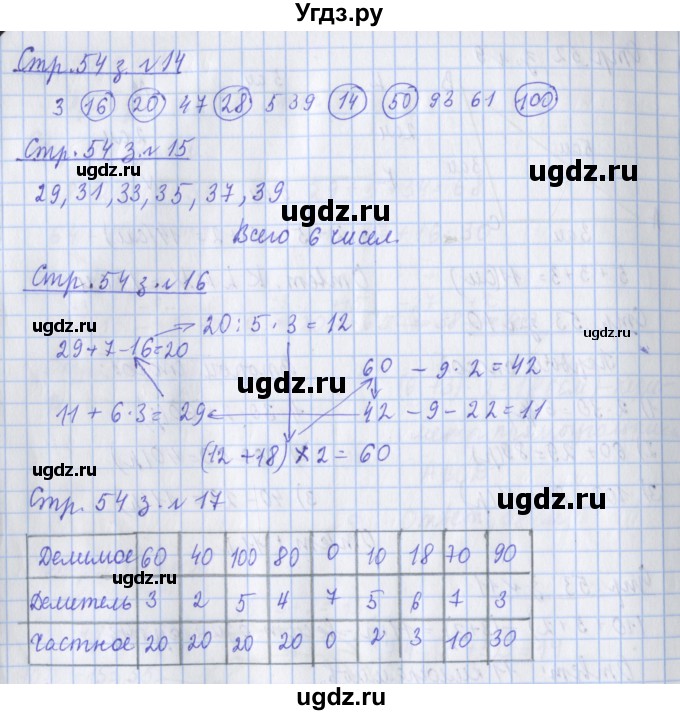 Угдз.ру
Стр. 54 з. №14
3 16 20 47 28 5 39 14 50 93 61 100
Стр. 54 з. № 15
ugdz.ru
ugdz.ru
29, 31, 33, 35, 37, 39
ugdz.ru
Всего 6 чисел.
Стр. 54 з. № 16
ugdz.ru
20 : 5 · 3 = 12
ugdz.ru
29 + 7 - 16 = 20
60 - 9 · 2 = 42
ugdz.ru
11 + 6 · 3 = 29
42 - 9 - 22 = 11
(12 + 18) × 2 = 60
ugdz.ru
Стр. 54 з. № 17
ugdz.ru
Делимое 60 40 100 80 0 10 18 70 90
ugdz.ru
Делитель 3 2 5 4 7 5 6 7 3
Частное 20 20 20 20 0 2 3 10 30
ugdz.ru
ugdz.ru
ugdz.ru